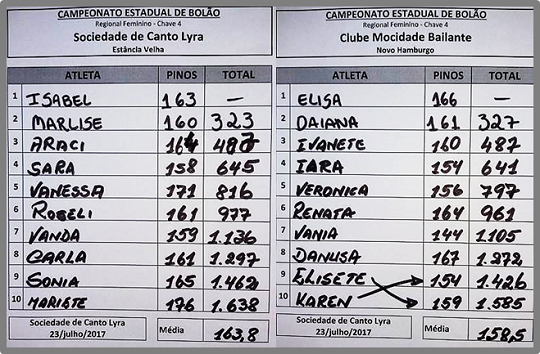 CAMPEONATO ESTADUAL DE BOLÃO
Regional Feminino - Chave 4
Sociedade de Canto Lyra
Estância Velha
ATLETA PINOS TOTAL
1 ISABEL 163 —
2 MARLISE 160 323
3 ARACI 164 487
4 SARA 158 645
5 VANESSA 171 816
6 ROSELI 161 977
7 VANDA 159 1.136
8 CARLA 161 1.297
9 SONIA 165 1.462
10 MARISTE 176 1.638
Sociedade de Canto Lyra
23/julho/2017
Média 163,8
CAMPEONATO ESTADUAL DE BOLÃO
Regional Feminino - Chave 4
Clube Mocidade Bailante
Novo Hamburgo
ATLETA PINOS TOTAL
1 ELISA 166 —
2 DAIANA 161 327
3 IVANETE 160 487
4 IARA 154 641
5 VERONICA 156 797
6 RENATA 164 961
7 VANIA 144 1.105
8 DANUSA 167 1.272
9 ELISETE 154 1.426
10 KAREN 159 1.585
Sociedade de Canto Lyra
23/julho/2017
Média 158,5